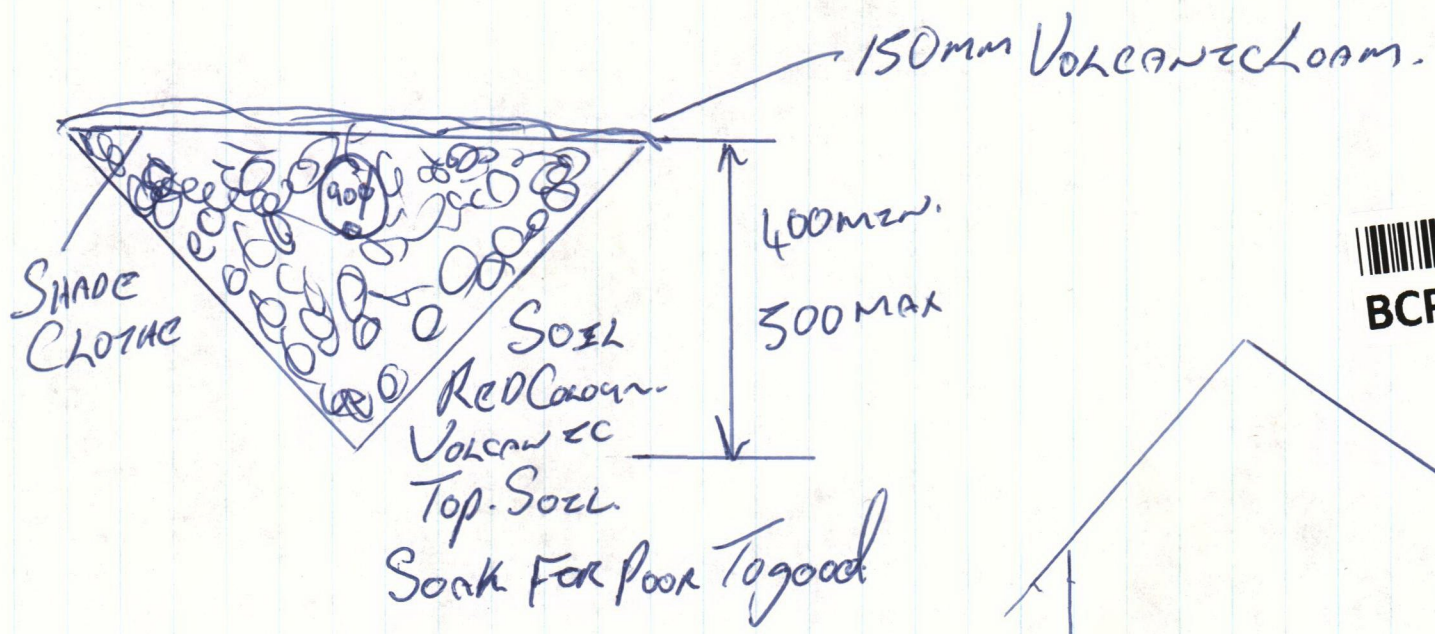 150mm VOLCANIC LOAM.
90ϕ
SHADE
CLOTHE
400 MIN.
500 MAX
SOIL
RED Colour.
VOLCANIC
TOP. SOIL.
SOAK FOR POOR To good
BCP